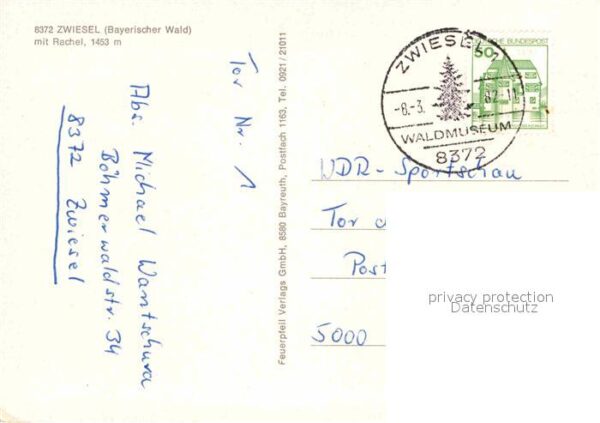 8372 ZWIESEL (Bayerischer Wald)
mit Rachel, 1453 m
Tor Nr. 1
Abs. Michael Wantschura
Böhmerwaldstr. 34
8372 Zwiesel
Feuerpfeil Verlags GmbH, 8580 Bayreuth, Postfach 1163, Tel. 0921/21011
ZWIESEL 1
-8.-3. 82-11
WALDMUSEUM
8372
50
BUNDESPOST
WDR-Sportschau
Tor
Post
5000
privacy protection
Datenschutz